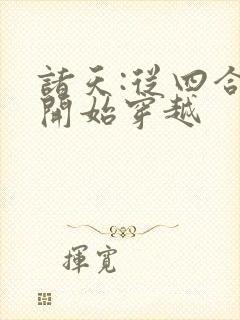 諸天:從四合
開始穿越
揮寬